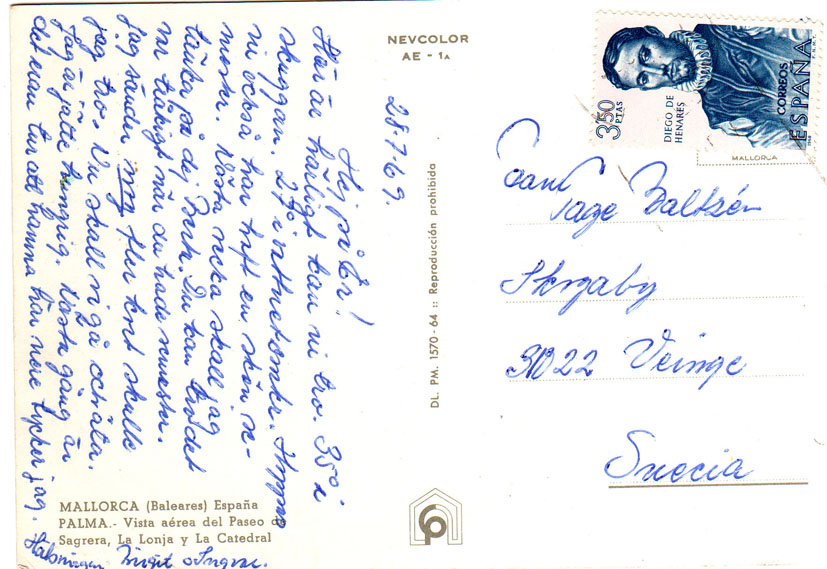 28-7-69.
Hej på Er!
Här är härligt kan ni tro. 35° i
skuggan. 27° i Hoppas
ni också har haft en skön se-
mester. Nästa vecka skall jag
tänka på dej Du kan tro det
var tråkigt när du hade semester.
Jag sänder nog fler kort skulle
jag tro. Nu skall vi gå och äta.
Jag är jätte hungrig. Nästa gång är
det eran tur att hamna här nere tycker jag.
Hälsningar Birgit o Ingvar.
MALLORCA (Baleares) España
PALMA.- Vista aérea del Paseo de
Sagrera, La Lonja y La Catedral
NEVCOLOR
AE - 1A
DL. PM. 1570 - 64 :: Reproducción prohibida
3'50 PTAS
DIEGO DE HENARES
CORREOS
ESPAÑA
MALLORCA
Fam
Tage Baltzén
Skogaby
31022 Veinge
Suecia